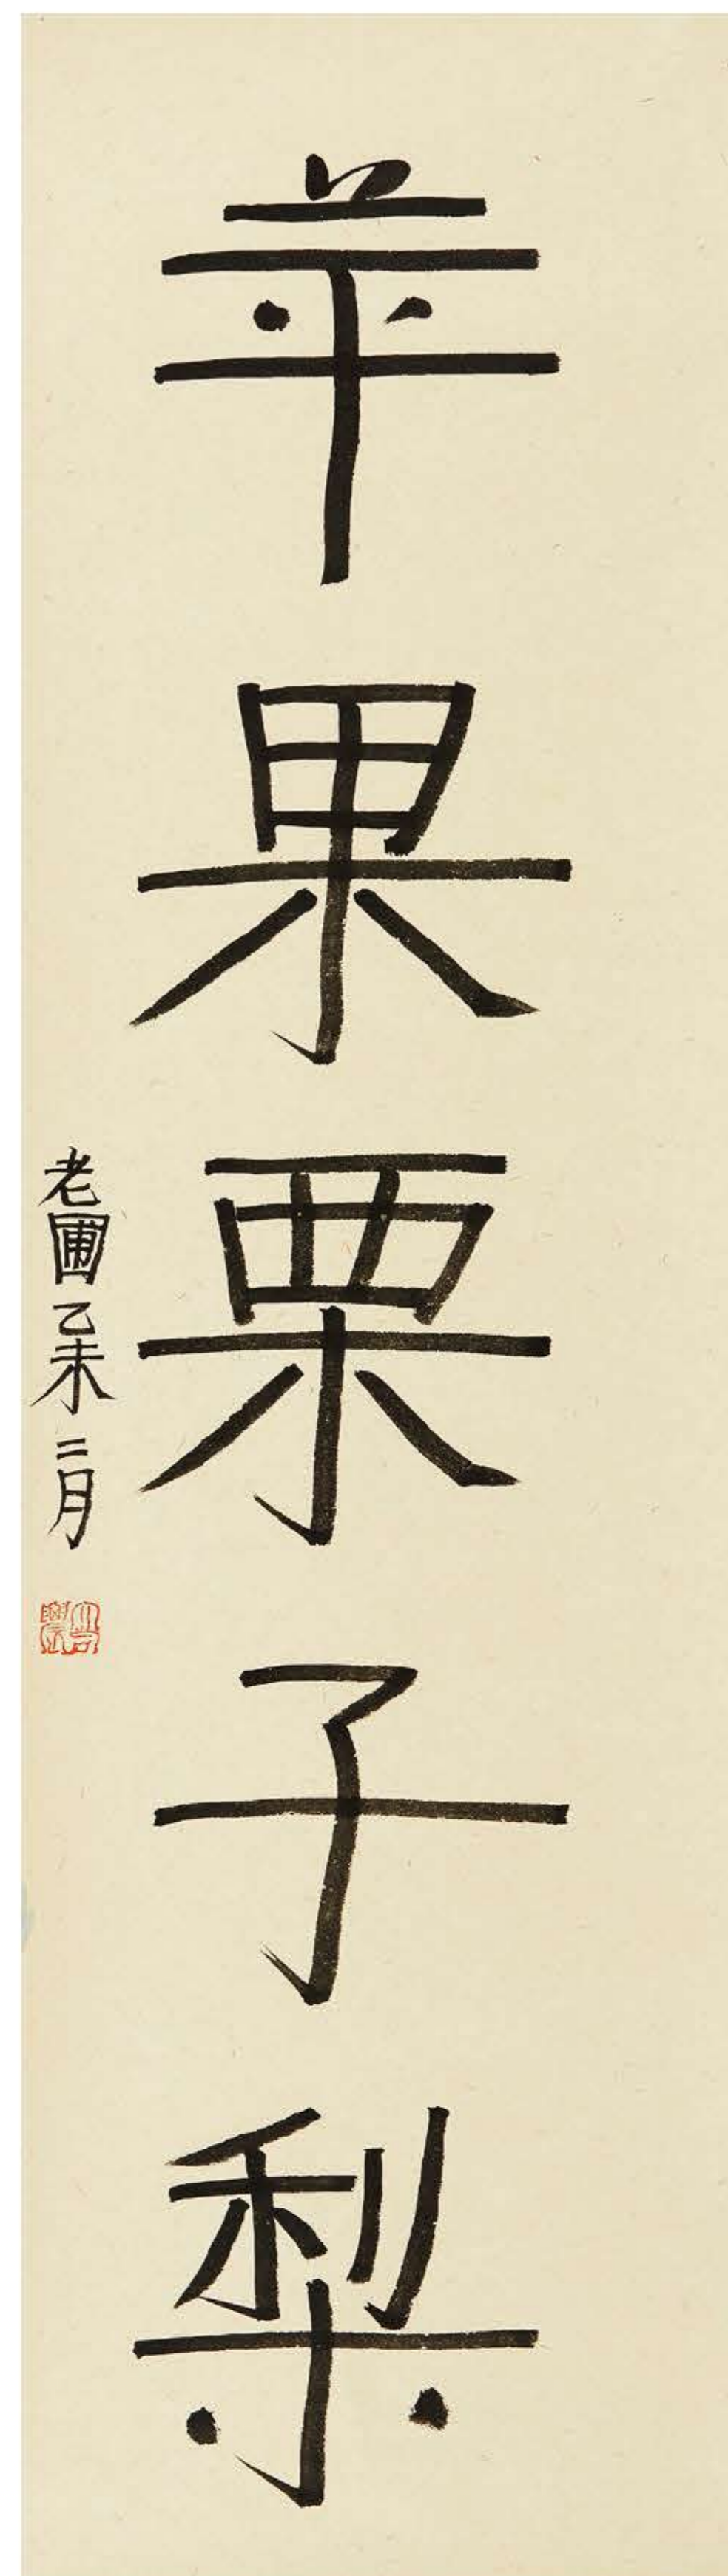 苹果栗子梨
老圃乙未二月